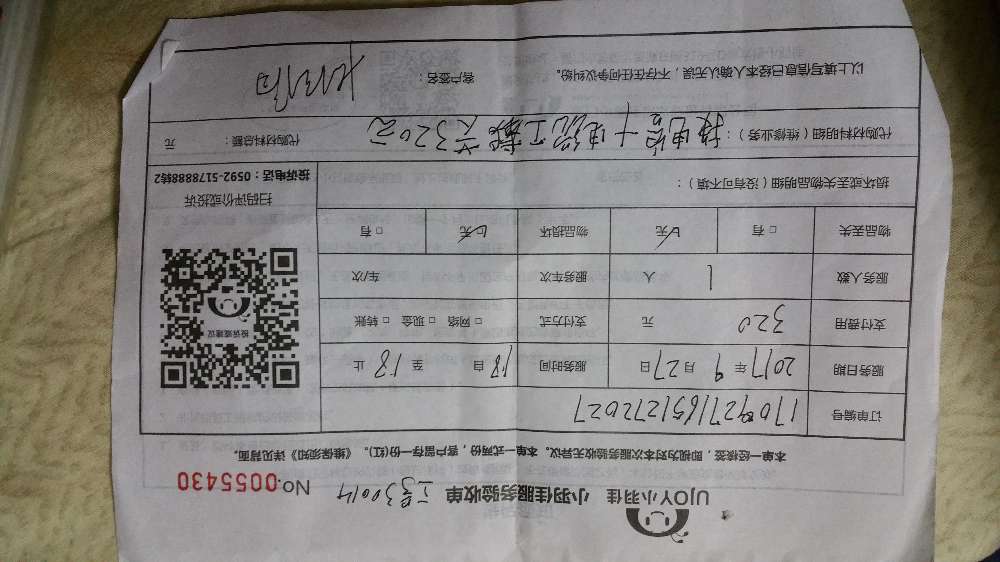 UJOY小羽佳 小羽佳服务验收单
No.0055430
本单一经核签，即视为对本次服务验收无异议。本单一式两份，客户留存一份(红)。《维保须知》详见背面。
订单编号 1709271651272027
服务日期 2017年9月27日 服务时间 18自 至18止
支付费用 320元 支付方式 □网络 □现金 □转账
服务人数 1人 服务车次 车/次
物品丢失 □有 ☑无 物品损坏 □有 ☑无
投诉或建议
扫码评价或投诉
投诉电话：0592-5178888转2
损坏或丢失物品明细（没有可不填）：
代购材料明细（维修业务）： 共320元
代购材料总额： 元
以上填写信息已经本人确认无误，不存在任何争议纠纷。 客户签名：